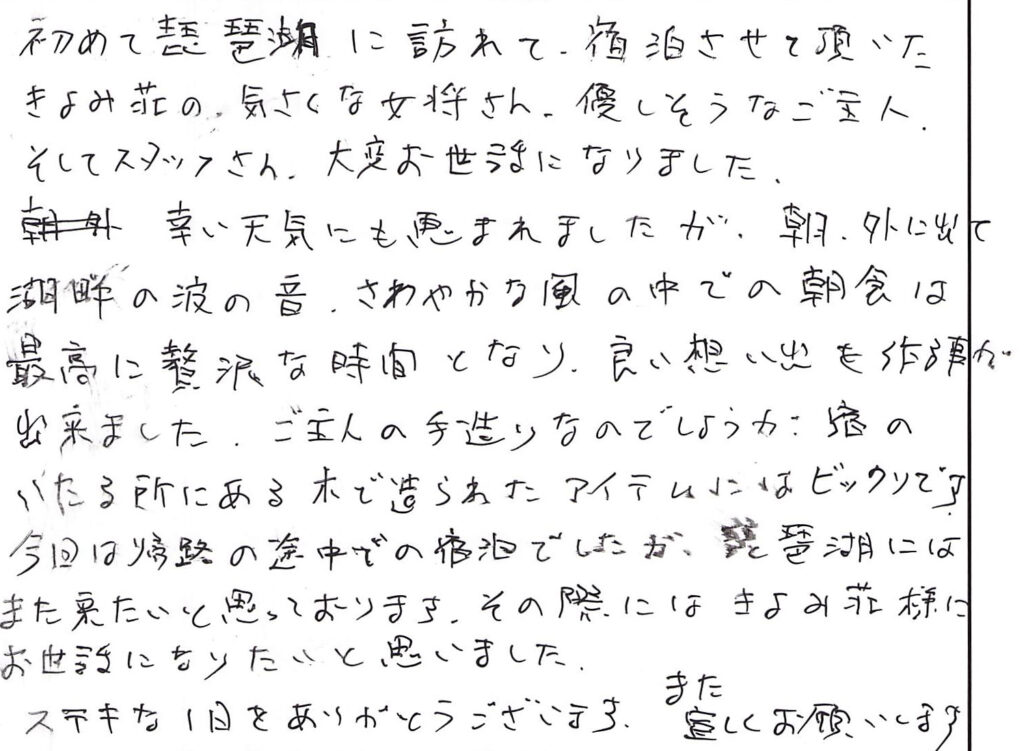 初めて琵琶湖に訪れて、宿泊させて頂いた
きよみ荘の、気さくな女将さん、優しそうなご主人、
そしてスタッフさん、大変お世話になりました。
幸い天気にも恵まれましたが、朝、外に出て
湖畔の波の音、さわやかな風の中での朝食は
最高に贅沢な時間となり、良い想い出を作る事が
出来ました。ご主人の手造りなのでしょうか?宿の
いたる所にある木で造られたアイテムにはビックリです
今回は帰路の途中での宿泊でしたが、琵琶湖には
また来たいと思っております。その際にはきよみ荘様に
お世話になりたいと思いました。
ステキな1日をありがとうございます。また
宜しくお願いします